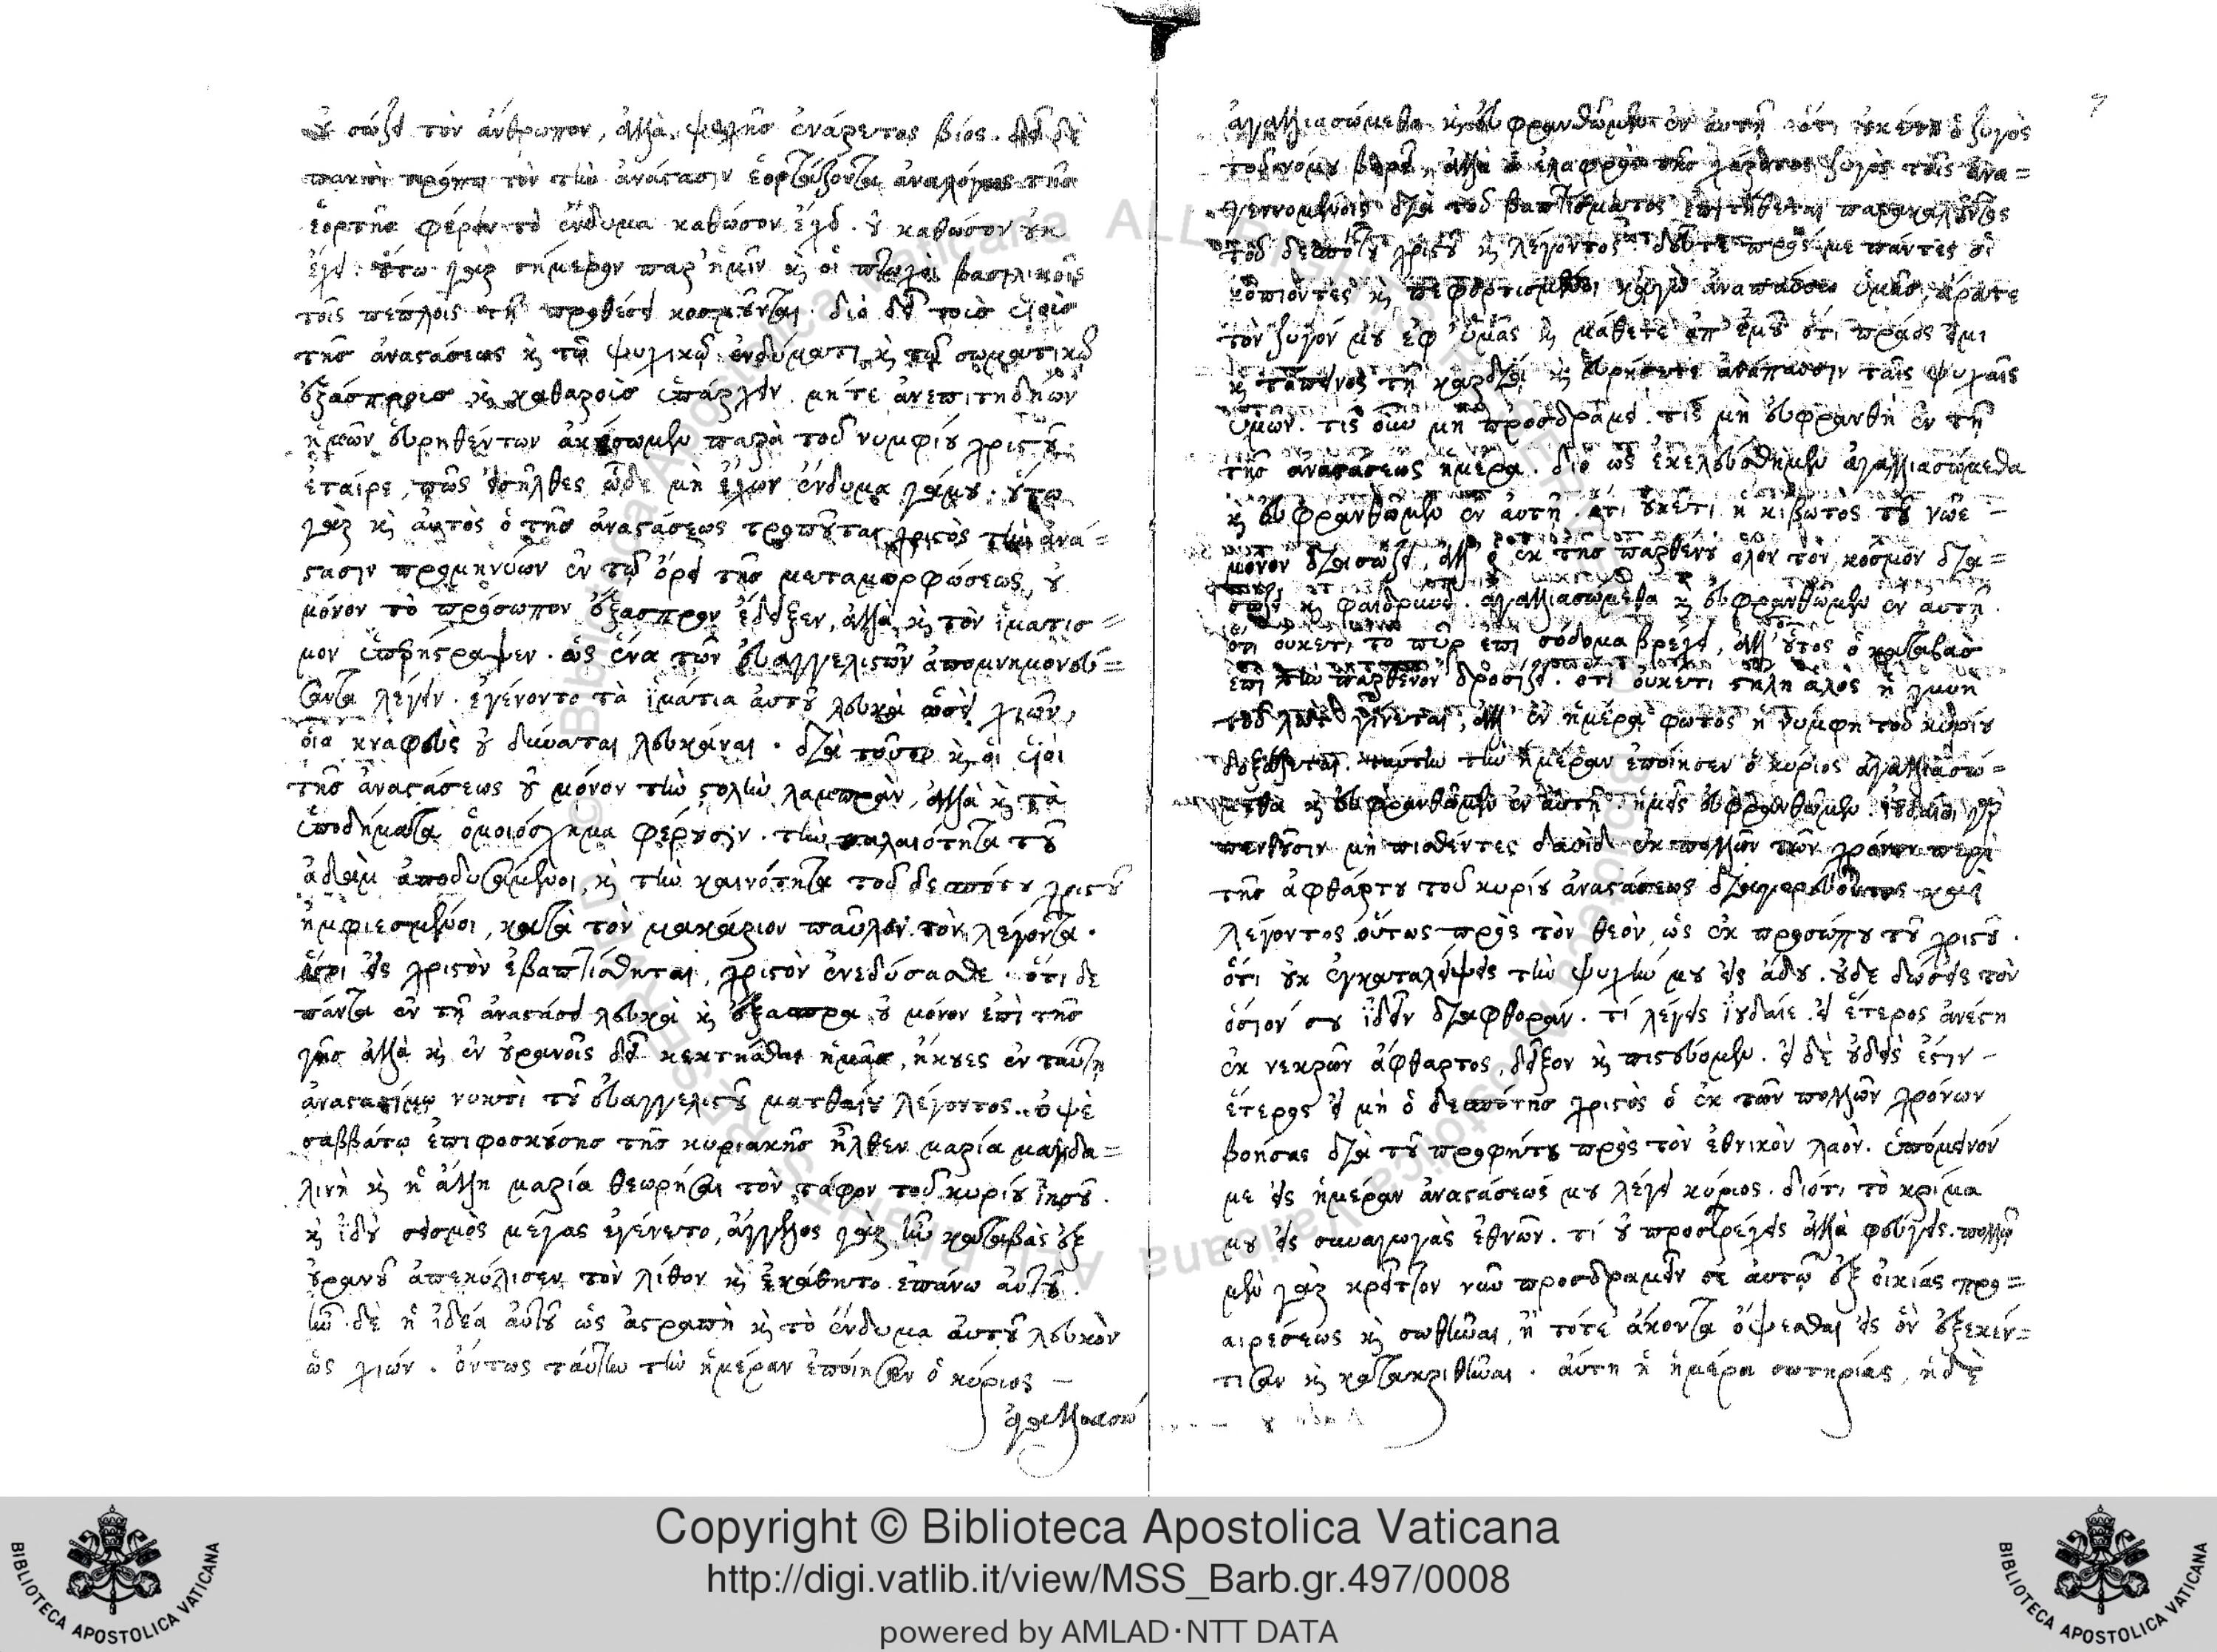 οὐ σώζει τὸν ἄνθρωπον, ἀλλὰ ψυχῆς ἐνάρετος βίος. δεῖ δὲ
τὸν τὴν ἀνάστασιν ἑορτάζοντα ἀναλόγως τῆς
ἑορτῆς φέρειν τὸ ἔνδυμα καθώσον ἔχει. οὐ καθώσον οὐκ
ἔχει. οὕτω γὰρ σήμερον παρ' ἡμῖν κὶ οἱ πτωχοὶ βασιλικοῖς
τοῖς πέπλοις τῇ προθέσει κοσμοῦνται διὸ δεῖ τοὶς υἱοὶς
τῆς ἀναστάσεως κὶ τῷ ψυχικῷ ἐνδύματι κὶ τῷ σωματικῷ
ἐξάσπροις κὶ καθαροὶς ὑπάρχειν. μήτε ἀνεπιτηδείων
ἡμῶν εὑρηθέντων ἀκούσωμεν παρὰ τοῦ νυμφίου χριστοῦ.
ἑταίρε, πῶς εἰσῆλθες ὧδε μὴ ἔχων ἔνδυμα γάμου. οὕτω
γὰρ κὶ αὐτὸς ὁ τῆς ἀναστάσεως τροπούται χριστὸς τὴν ἀνά=
στασιν προμηνύων ἐν τῷ ὄρει τῆς μεταμορφώσεως, οὐ
μόνον τὸ πρόσωπον ἔξασπρον ἔδειξεν, ἀλλὰ κὶ τὸν ἱματισ=
μον ὑπερήστραψεν. ὡς ἕνα τῶν εὐαγγελιστῶν ἀπομνημονεύ=
σαντα λέγειν. ἐγένοντο τὰ ἱμάτια αὐτοῦ λευκὰ ὡσεὶ χιών,
οἷα κναφεὺς οὐ δύναται λευκάναι. διὰ τοῦτο κὶ οἱ υἱοὶ
τῆς ἀναστάσεως οὐ μόνον τὴν στολὴν λαμπρὰν, ἀλλὰ κὶ τὰ
ὑποδήματα ὁμοιόσχημα φέρουσιν. τὴν παλαιότητα τοῦ
ἀδὰμ ἀποδυσάμενοι, κὶ τὴν καινότητα τοῦ δεσπότου χριστοῦ
ἠμφιεσμένοι, κατὰ τὸν μακάριον παῦλον τὸν λέγοντα.
ὅσοι εἰς χριστὸν ἐβαπτίσθηται, χριστὸν ἐνεδύσασθε. ὅτι δε
πάντα ἐν τῇ ἀναστάσει λευκὰ κὶ ἔξασπρα οὐ μόνον ἐπὶ τῆς
γῆς ἀλλὰ κὶ ἐν οὐρανοῖς δεῖ κεκτήσθαι ἡμᾶς, ἤκουες ἐν ταύτῃ
ἀναστασίμῳ νυκτὶ τοῦ εὐαγγελιστοῦ ματθαίου λέγοντος. ὀψὲ
σαββάτῳ ἐπιφοσκούσης τῆς κυριακῆς ἦλθεν μαρία μαγδα=
λινὴ κὶ ἡ ἄλλη μαρία θεωρῆσαι τὸν τάφον τοῦ κυρίου ἰησοῦ.
κὶ ἰδοὺ σεισμὸς μέγας ἐγένετο, ἄγγελος γὰρ κυ καταβὰς ἐξ
οὐρανοῦ ἀπεκύλισεν τὸν λίθον κὶ ἐκάθητο ἐπάνω αὐτοῦ.
ἦν δὲ ἡ ἰδέα αὐτοῦ ὡς ἀστραπὴ κὶ τὸ ἔνδυμα αὐτοῦ λευκὸν
ὡς χιών. ὄντως ταύτην τὴν ἡμέραν ἐποίησεν ὁ κύριος –
ἀγαλλιασώ
7
ἀγαλλιασώμεθα κὶ εὐφρανθῶμεν ἐν αὐτῇ ὅτι οὐκέτι ὁ ζυγὸς
τοῦ νόμου ἀλλὰ ὁ ἐλαφρὸς τῆς χάριτος ζυγὸς τοῖς ἀνα=
γεννομένοις διὰ τοῦ βαπτίσματος ἐπιτήθεται παρακαλοῦντος
τοῦ δεσπότου χριστοῦ κὶ λέγοντος δεῦτε πρὸς με πάντες οἱ
κοπιόντες κὶ πεφορτισμένοι κἀγὼ ἀναπαύσω ὑμᾶς, ἄρατε
τὸν ζυγόν μου ἐφ' ὑμᾶς κὶ μάθετε ἀπ' ἐμοῦ ὅτι πράος εἰμι
κὶ ταπεινὸς τῇ καρδία κὶ εὑρήσετε ἀνάπαυσιν ταῖς ψυχαῖς
ὑμῶν. τίς οὖν μὴ προσδράμει. τίς μὴ εὐφρανθῇ ἐν τῇ
τῆς ἀναστάσεως ἡμέρα. διὸ ὡς ἐκελεύσθημεν ἀγαλλιασώμεθα
κὶ εὐφρανθῶμεν ἐν αὐτῇ. ὅτι οὐκέτι ἡ κιβωτὸς τοῦ νῶε –
μόνον διασώζει, ἀλλ' ὁ ἐκ τῆς παρθένου ὅλον τὸν κόσμον δια=
σώζει κὶ φαιδρύνει. ἀγαλλιασώμεθα κὶ εὐφρανθῶμεν ἐν αὐτῇ.
ὅτι οὐκέτι τὸ πῦρ ἐπὶ σόδομα βρέχει, ἀλλ' οὗτος ὁ καταβὰς
ἐπὶ τὴν παρθένον δροσίζει. ὅτι οὐκέτι στήλη ἁλὸς ἡ γυνὴ
τοῦ λὼτ γίνεται, ἀλλ' ἐν ἡμέρα φωτὸς ἡ νύμφη τοῦ κυρίου
δοξάζεται. ταύτην τὴν ἡμέραν ἐποίησεν ὁ κύριος ἀγαλλιασώ=
μεθα κὶ εὐφρανθῶμεν ἐν αὐτῇ. ἡμεῖς εὐφρανθῶμεν. ἰουδαῖοι γὰρ
πενθοῦσιν μὴ πισθέντες δαυὶδ ἐκ πολλῶν τῶν χρόνων περὶ
τῆς ἀφθάρτου τοῦ κυρίου ἀναστάσεως διαγορεύοντος κὶ
λέγοντος οὕτως πρὸς τὸν θεὸν, ὡς ἐκ προσώπου τοῦ χριστοῦ.
ὅτι οὐκ ἐγκαταλείψεις τὴν ψυχήν μου εἰς ἅδου. οὐδε δώσεις τὸν
ὅσιόν σου ἰδεῖν διαφθοράν. τί λέγεις ἰουδαίε. εἰ ἕτερος ἀνέστη
ἐκ νεκρῶν ἄφθαρτος, δεῖξον κὶ πιστεύομεν. εἰ δὲ οὐδεὶς ἐστὶν –
ἕτερος εἰ μὴ ὁ δεσπότης χριστὸς ὁ ἐκ τῶν πολλῶν χρόνων
βοήσας διὰ τοῦ προφήτου πρὸς τὸν ἐθνικὸν λαόν. ὑπόμεινόν
με εἰς ἡμέραν ἀναστάσεώς μου λέγει κύριος. διότι τὸ κρίμα
μου εἰς συναγωγὰς ἐθνῶν. τί οὐ προστρέχεις ἀλλὰ φεύγεις. πολλῷ
μὲν γὰρ κρεῖττον νῦν προσδραμεῖν σε αὐτῷ ἐξ οἰκίας προ=
αιρέσεως κὶ σωθῆναι, ἢ τότε ἄκοντα ὄψεσθαι εἰς ὃν ἐξεκέν=
τισαν κὶ κατακριθῆναι. αὕτη ἡ ἡμέρα σωτηρίας, ἡ δὲ
Copyright © Biblioteca Apostolica Vaticana
http://digi.vatlib.it/view/MSS_Barb.gr.497/0008
powered by AMLAD·NTT DATA
BIBLIOTECA APOSTOLICA VATICANA
BIBLIOTECA APOSTOLICA VATICANA